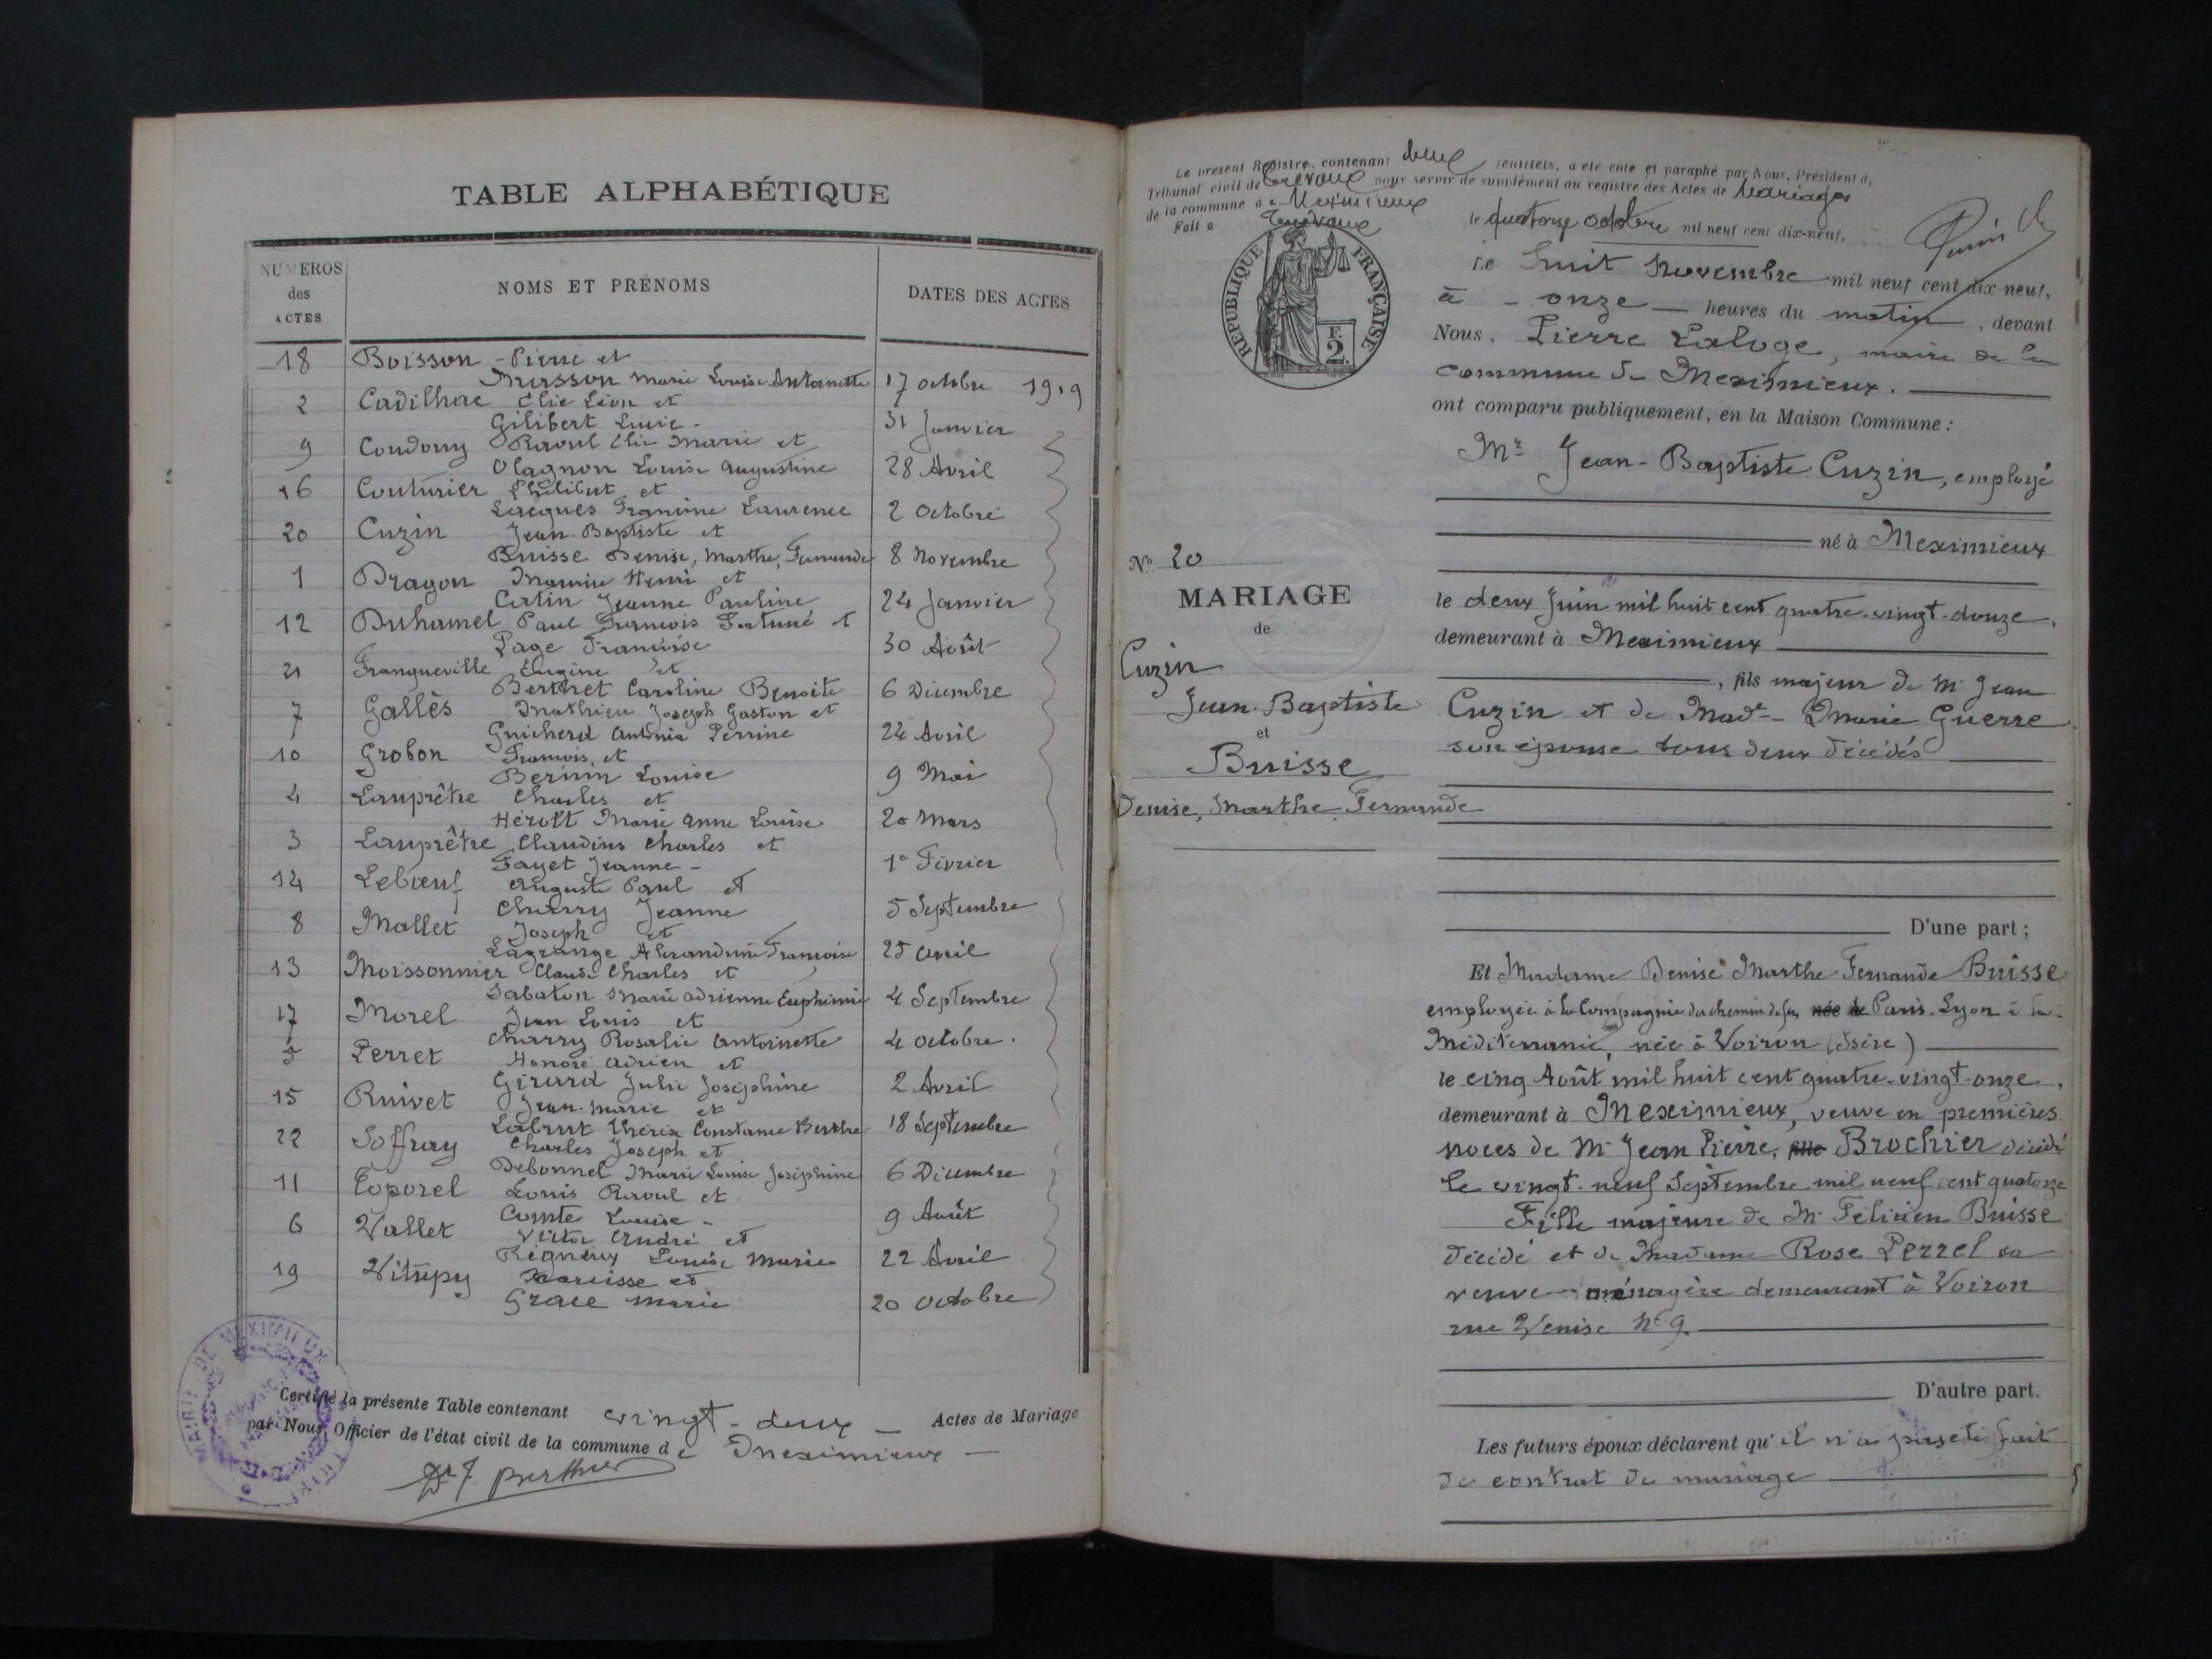 TABLE ALPHABÉTIQUE
NUMEROS des ACTES
NOMS ET PRÉNOMS
DATES DES ACTES
18 Boisson Pierre et
Musson Marie Louise Antoinette 17 octobre 1919
2 Cadilhac Elie Léon et
Gilibert Lucie - 31 Janvier
9 Coudouy Raoul Elie Marie et
Olagnon Louise Augustine 28 Avril
16 Couturier Philibert et
Lacques Framine Laurence 2 Octobre
20 Cuzin Jean-Baptiste et
Buisse Denise, Marthe, Fernande 8 Novembre
1 Dragon Maurice Henri et
Catin Jeanne Pauline 24 Janvier
12 Duhamel Paul François Fortuné et
Page Françoise 30 Août
21 Frangueville Eugène et
Berthet Caroline Benoite 6 Décembre
7 Gallès Mathieu Joseph Gaston et
Guicherd Antonia Perrine 24 Avril
10 Grobon François et
Bernin Louise 9 Mai
4 Lauprêtre Charles et
Hérolt Marie Anne Louise 20 Mars
3 Lauprêtre Claudius Charles et
Fayet Jeanne - 1er Février
14 Lebœuf Auguste Paul et
Charry Jeanne 5 Septembre
8 Mallet Joseph et
Lagrange Alexandrine Françoise 25 avril
13 Moissonnier Claude Charles et
Sabaton Marie Adrienne Euphémie 4 Septembre
17 Morel Jean Louis et
Charry Rosalie Antoinette 4 octobre.
5 Perret Honoré Adrien et
Girard Julie Joséphine 2 Avril
15 Ruivet Jean-Marie et
Labrut Thérèse Constance Berthe 18 Septembre
22 Soffray Charles Joseph et
Debonnel Marie Louise Joséphine 6 Décembre
11 Toporel Louis Raoul et
Comte Louise - 9 Août
6 Vallet Victor André et
Rigneux Louise Marie 22 Avril
19 Vitupy Narcisse et
Grace Marie 20 Octobre
Certifié la présente Table contenant vingt-deux Actes de Mariage
par Nous, Officier de l'état civil de la commune de Meximieux
Dr J. Berthier
MAIRIE DE MEXIMIEUX
Le présent Registre, contenant deux feuillets, a été coté et paraphé par Nous, Président du
Tribunal civil de Trévoux pour servir de supplément au registre des Actes de Mariages
de la commune de Meximieux
Fait à Trévoux le quatorze octobre mil neuf cent dix-neuf.
RÉPUBLIQUE FRANÇAISE
F. 2.
Le huit Novembre mil neuf cent dix-neuf,
à - onze - heures du matin, devant
Nous, Pierre Laloge, maire de la
commune de Meximieux.
ont comparu publiquement, en la Maison Commune :
Mr Jean-Baptiste Cuzin, employé
né à Meximieux
le deux Juin mil huit cent quatre-vingt-douze,
demeurant à Meximieux
, fils majeur de Mr Jean
Cuzin et de Made Marie Guerre
son épouse tous deux décédés
D'une part ;
No 20
MARIAGE
de
Cuzin
Jean-Baptiste
et
Buisse
Denise, Marthe Fernande
Et Madame Denise Marthe Fernande Buisse
employée à la Compagnie du chemin de fer née de Paris-Lyon à la
Méditerranée, née à Voiron (Isère)
le cinq Août mil huit cent quatre-vingt-onze,
demeurant à Meximieux, veuve en premières
noces de Mr Jean Pierre, fille Brochier décédé
le vingt-neuf Septembre mil neuf cent quatorze
Fille majeure de Mr Félicien Buisse
décédé et de Madame Rose Perrel sa
veuve ménagère demeurant à Voiron
rue Venise No 9.
D'autre part.
Les futurs époux déclarent qu'il n'a pas été fait
de contrat de mariage